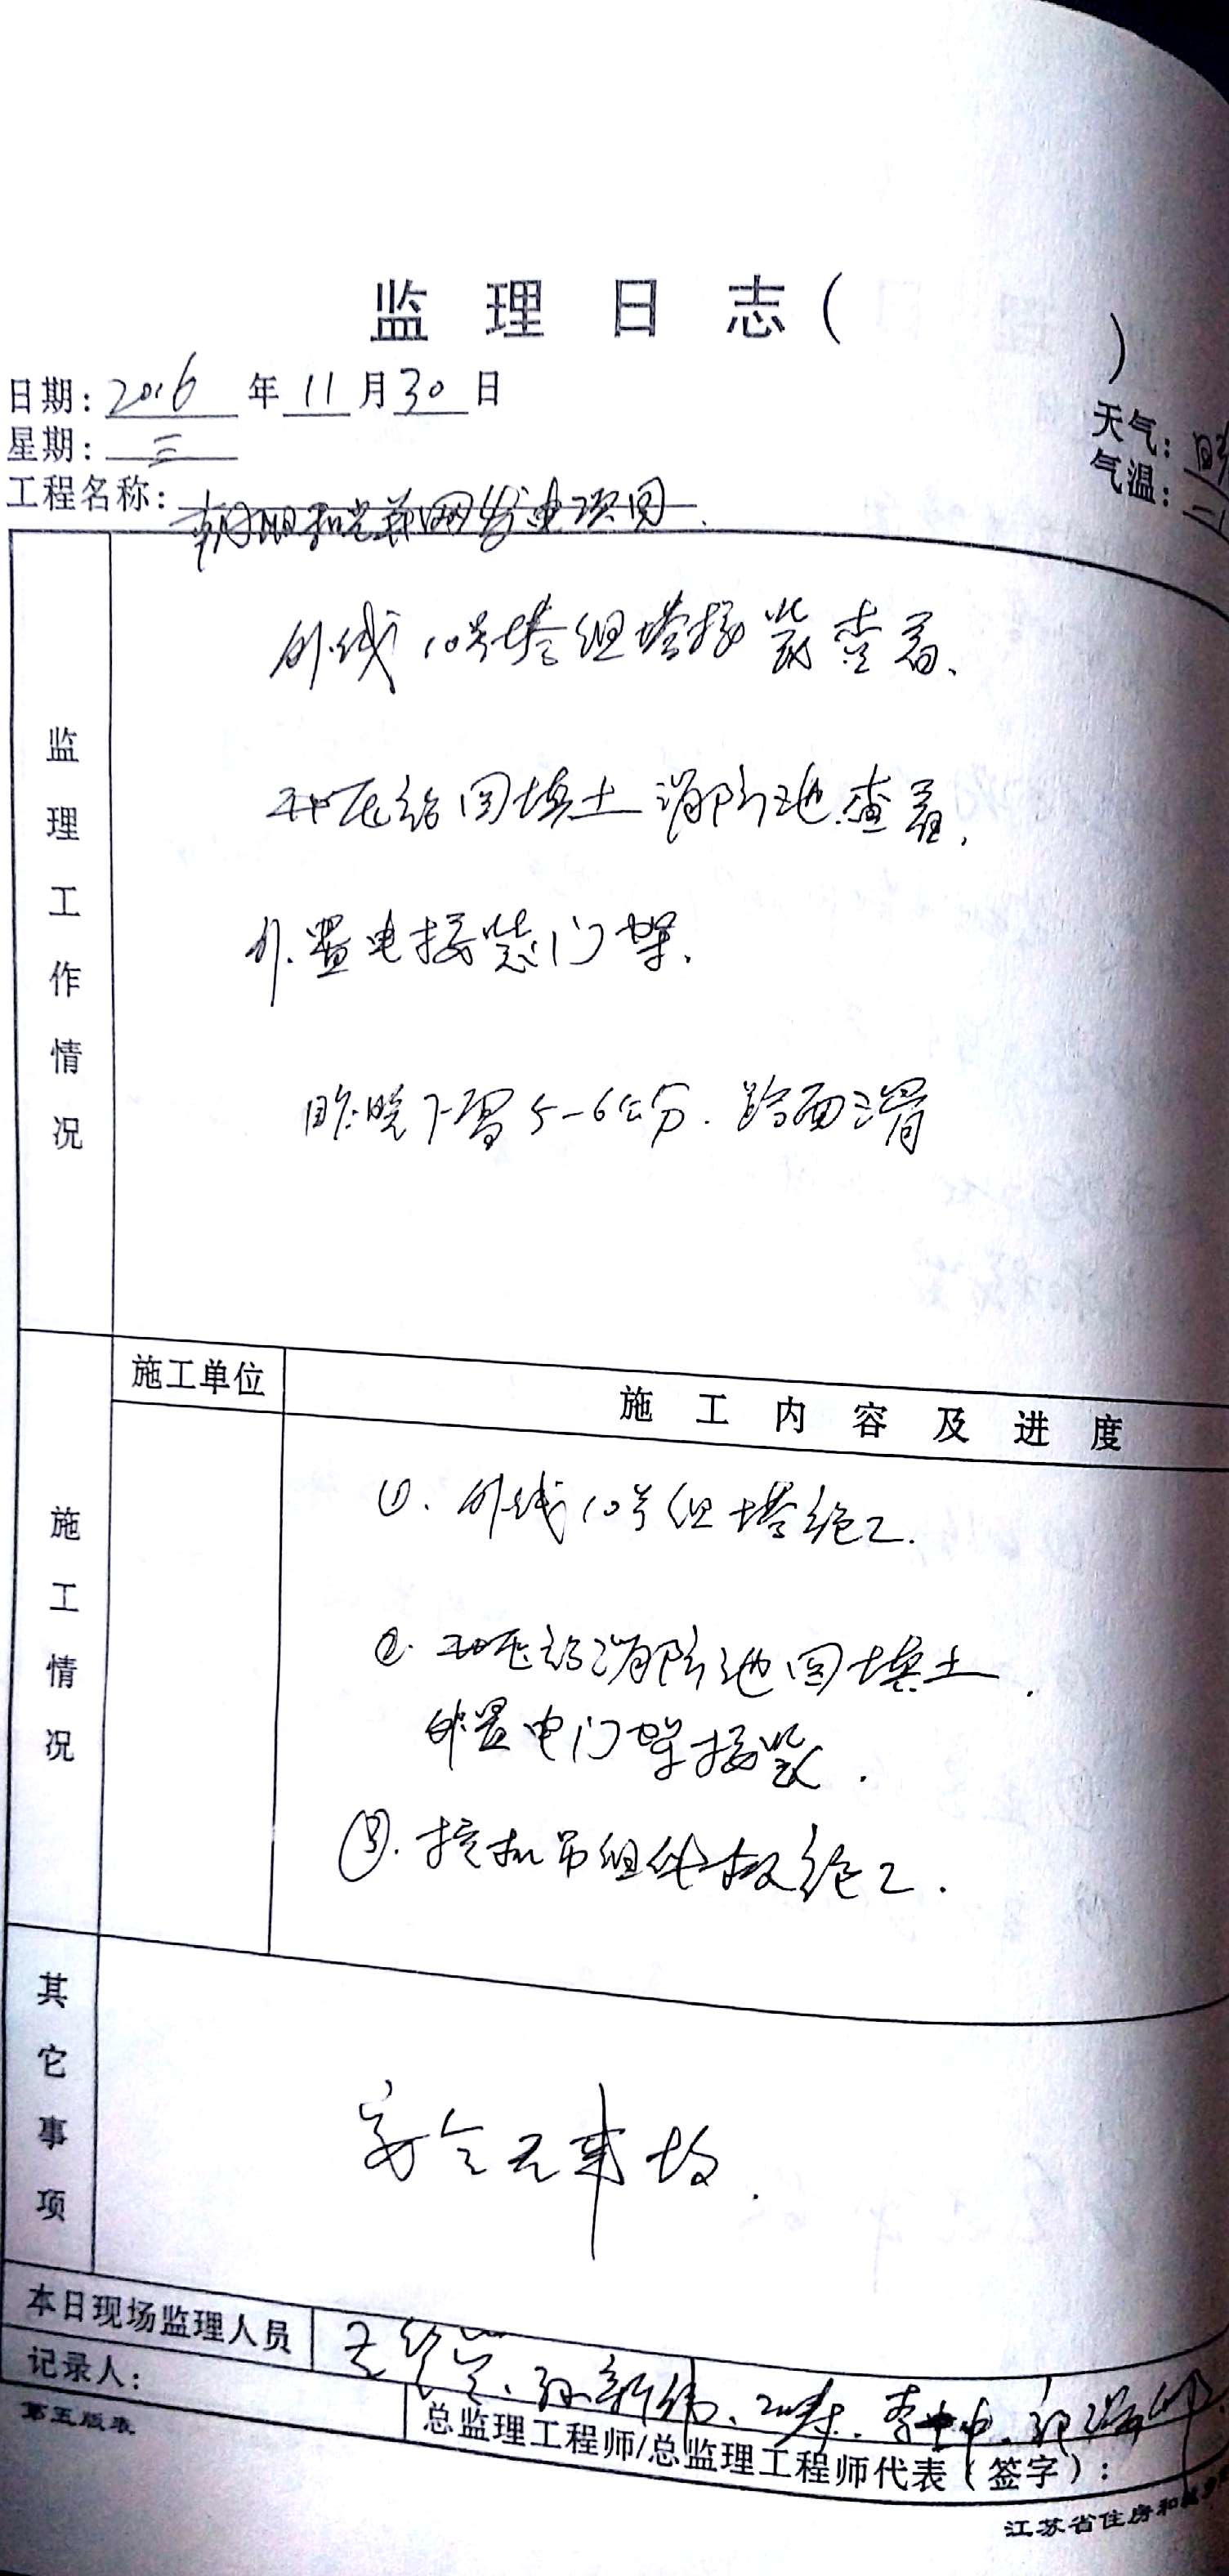 监 理 日 志 ( )
日期: 2016 年 11 月 30 日
星期: 三
天气:
气温:
工程名称: 并网发电项目.
监理工作情况
外线10号塔组塔接装查看、
开压站回填土消防池查看,
外置电接装门架.
昨晚下雪5-6公分. 路面滑
施工情况
施工单位
施 工 内 容 及 进 度
①. 外线10号组塔施工.
②. 开压站消防池回填土.
外置电门架接装.
③. 挖机吊组件板施工.
其它事项
安全无事故.
本日现场监理人员
孙新伟、
记录人:
总监理工程师/总监理工程师代表(签字):
第五版表
江苏省住房和